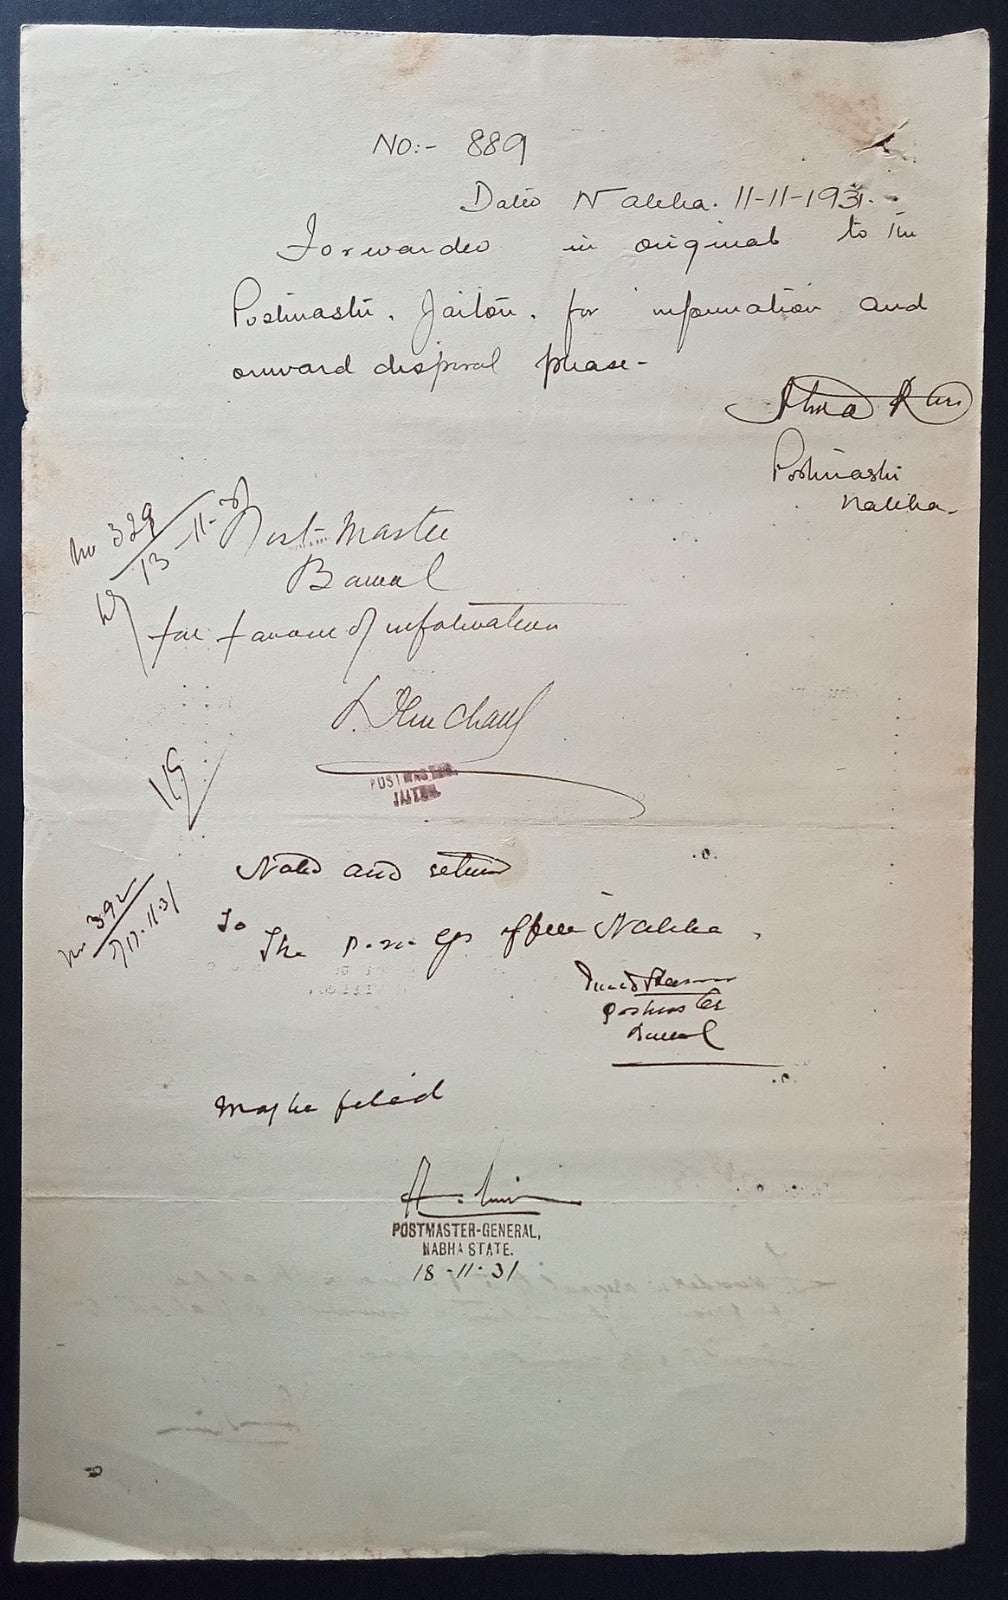 No:- 889
Dated Nabha. 11-11-1931.
Forwarded in original to the
Postmaster, Jaitou, for information and
onward disposal please-
Atma Ram
Postmaster
Nabha-
No 329
13-11-31
Post-Master
Bawal
for favour of information
POSTMASTER,
JAITU.
119
Noted and returned
To
The P.M.G's office Nabha,
No 392
17.11.31
Postmaster
Bawal
May be filed
POSTMASTER-GENERAL,
NABHA STATE.
18-11-31